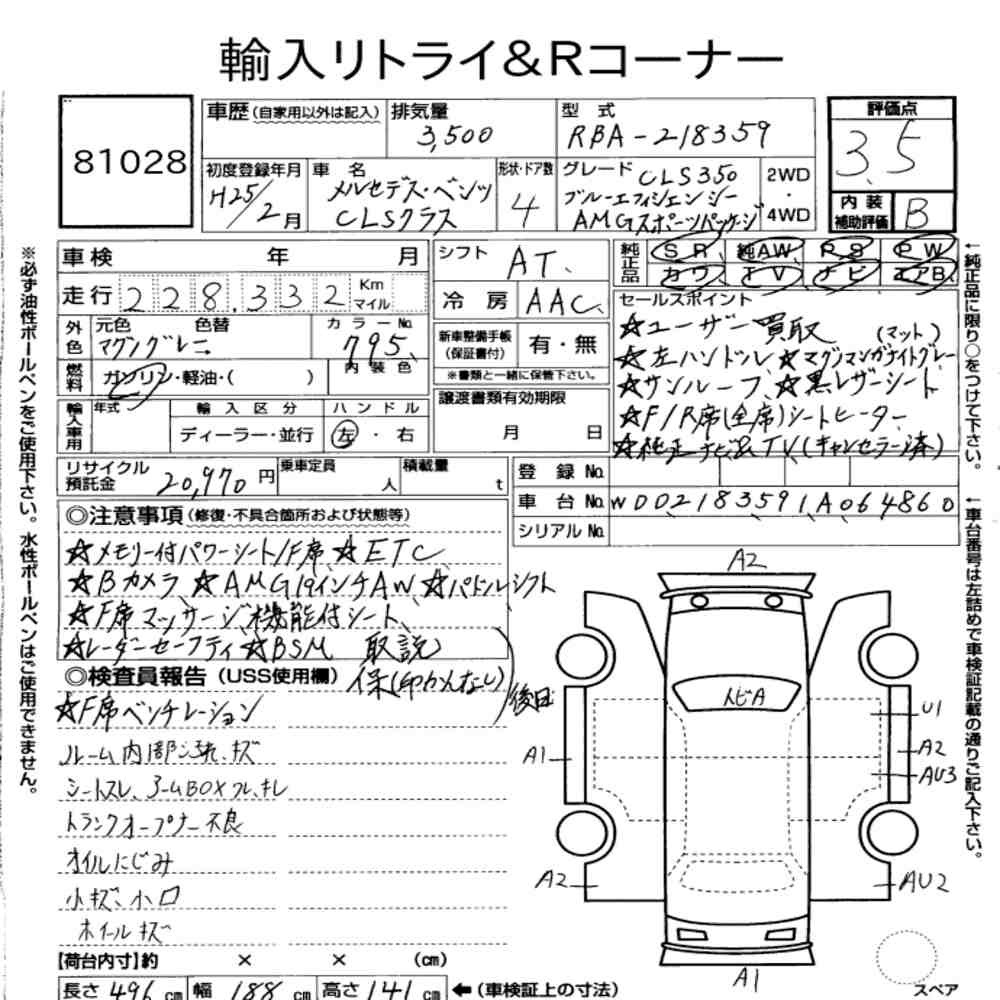 輸入リトライ&Rコーナー
81028
車歴(自家用以外は記入)
排気量
3,500
型式
RBA-218359
評価点
3.5
初度登録年月
H25/2月
車名
メルセデス・ベンツ
CLSクラス
形状・ドア数
4
グレード CLS350
ブルーエフィシェンシー
AMGスポーツパッケージ
2WD
・
4WD
内装
補助評価
B
車検 年 月
シフト
AT.
純正品
SR 純AW PS PW
カワ TV ナビ エアB
走行 228,332 Km マイル
冷房 AAC
セールスポイント
☆ユーザー買取 (マット)
☆左ハンドル ☆マグノマンガナイトグレー
☆サンルーフ ☆黒レザーシート
☆F/R席(全席)シートヒーター
☆純正ナビ&TV(キャンセラー済)
外色
元色 色替
マグノグレー
カラーNo.
795
内装色
新車整備手帳
(保証書付)
有・無
※書類と一緒に保管下さい。
燃料
ガソリン・軽油・( )
譲渡書類有効期限
月 日
輸入車用
年式
輸入区分
ディーラー・並行
ハンドル
左・右
リサイクル
預託金
20,970円
乗車定員
人
積載量
t
登録No.
車台No. WDD2183591A064860
シリアルNo.
◎注意事項(修復・不具合箇所および状態等)
☆メモリー付パワーシート/F席 ☆ETC
☆Bカメラ ☆AMG19インチAW ☆パドルシフト
☆F席マッサージ機能付シート
☆レーダーセーフティ ☆BSM 取説
保(印かんなし) 後日
◎検査員報告(USS使用欄)
☆F席ベンチレーション
ルーム内部汚れ、キズ
シートスレ、アームBOXスレ、キレ
トランクオープナー不良
オイルにじみ
小キズ、小凹
ホイールキズ
A2
トビA
U1
A1
A2
AU3
A2
AU2
A1
スペア
【荷台内寸】約 × × (cm)
長さ 496cm 幅 188cm 高さ 141cm ←(車検証上の寸法)
※必ず油性ボールペンをご使用下さい。水性ボールペンはご使用できません。
←純正品に限り○をつけて下さい。
←車台番号は左詰めで車検証記載の通りご記入下さい。